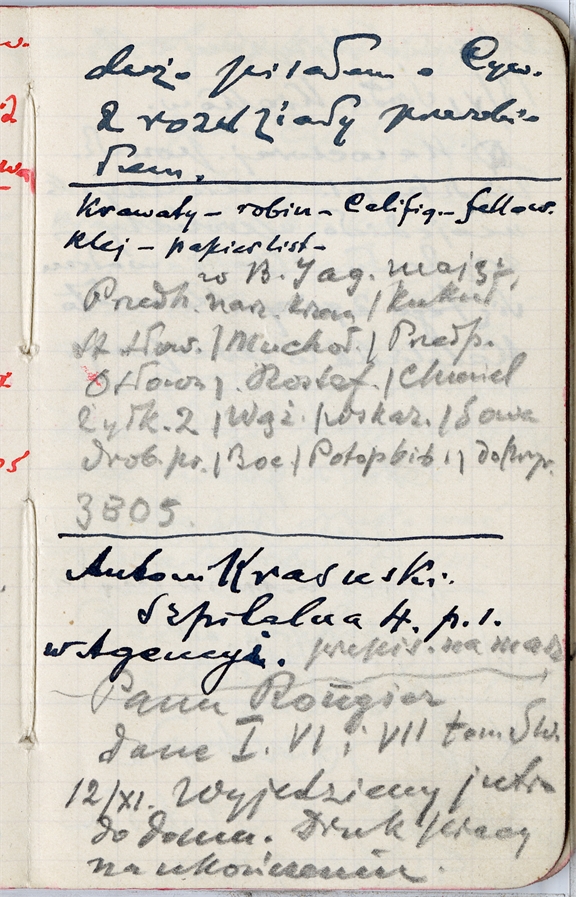 dużo pisałam o Cyw.
2 rozdziały przerobi-
łam.
Krawaty – robin – Califig – fellow.
Klej – papier list –
w B. Jag. mają
Przedh. narz. / Kukuł
St. Słow. / Muchoł / Przedp.
Słown. / Rostaf. / Chmiel
Zytk. 2 / Wąż / wskaz. / Sowa
drob. pr. / Boc / Potop bib. /
3805.
Antoni Krasuski.
Szpitalna 4. p. 1.
w Agencyi. przepis. na masz
Panu Rougier
dane I. VI i VII tom Sw.
12/XI. Wyjedziemy jutro
do domu. Druk pracy
na ukończeniu.